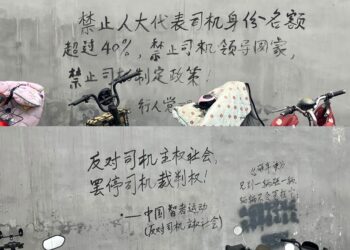 禁止人大代表司机身份名额
超过40%，禁止司机领导国家，
禁止司机制定政策！
行人党
反对司机主权社会，
罢停司机裁判权！
·——中国智者运动
(反对司机主权社会)